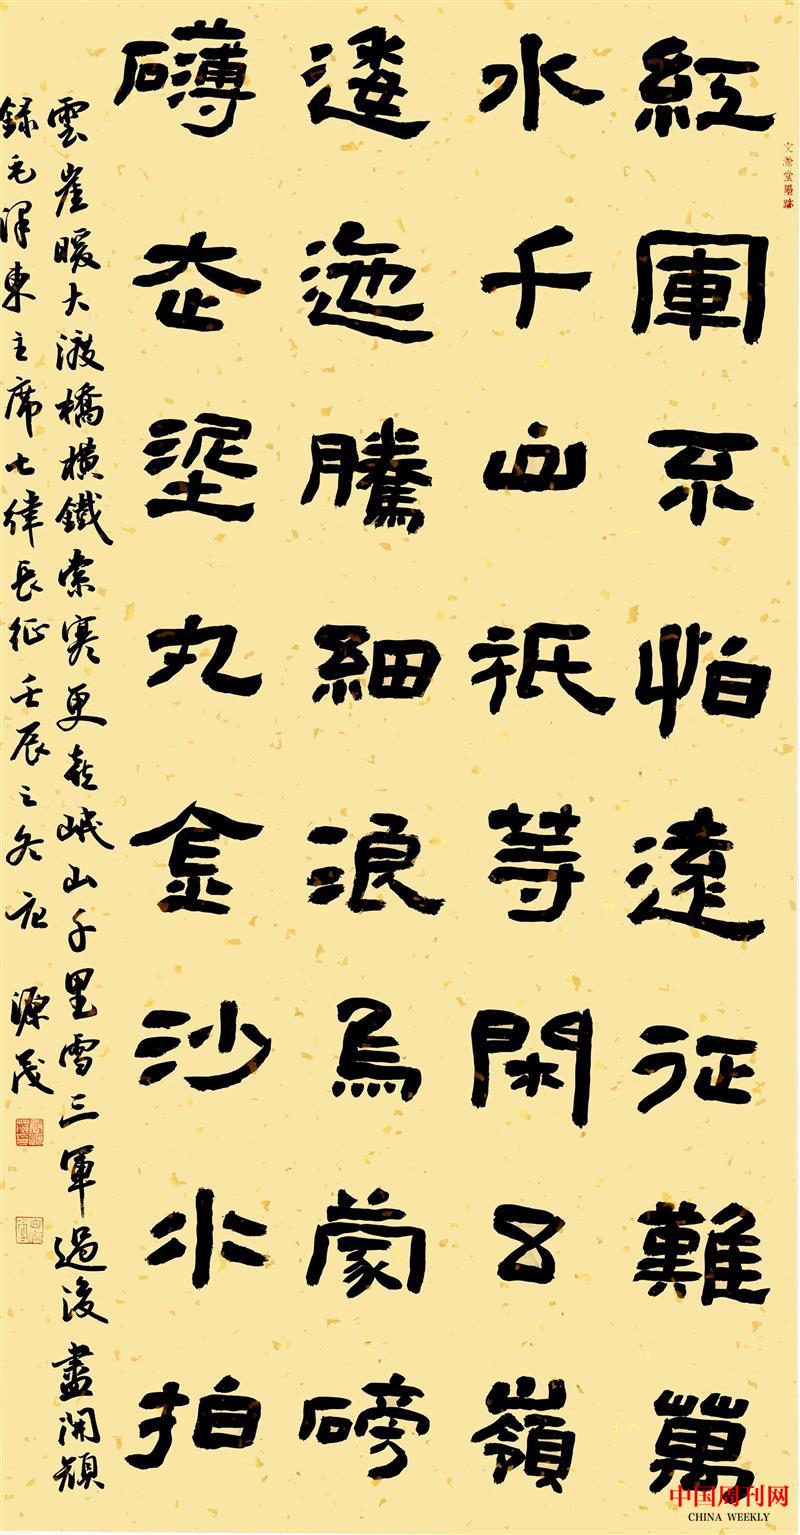 文瀚堂墨跡
紅軍不怕遠征難萬
水千山祇等閑五嶺
逶迤騰細浪烏蒙磅
礴走泥丸金沙水拍
雲崖暖大渡橋橫鐵索寒更喜岷山千里雪三軍過後盡開顏
錄毛澤東主席七律長征壬辰之冬 源茂
中国周刊网
CHINA WEEKLY